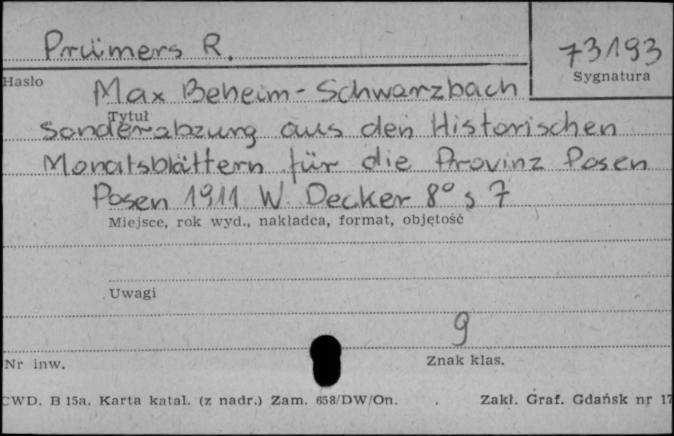 Prümers R.
73193
Hasło
Sygnatura
Max Beheim-Schwarzbach
Tytuł
Sonderabzung aus den Historischen
Monatsblättern für die Provinz Posen
Posen 1911 W. Decker 8° s 7
Miejsce, rok wyd., nakładca, format, objętość
Uwagi
9
Nr inw.
Znak klas.
CWD. B 15a. Karta katal. (z nadr.) Zam. 658/DW/On.
Zakł. Graf. Gdańsk nr 17